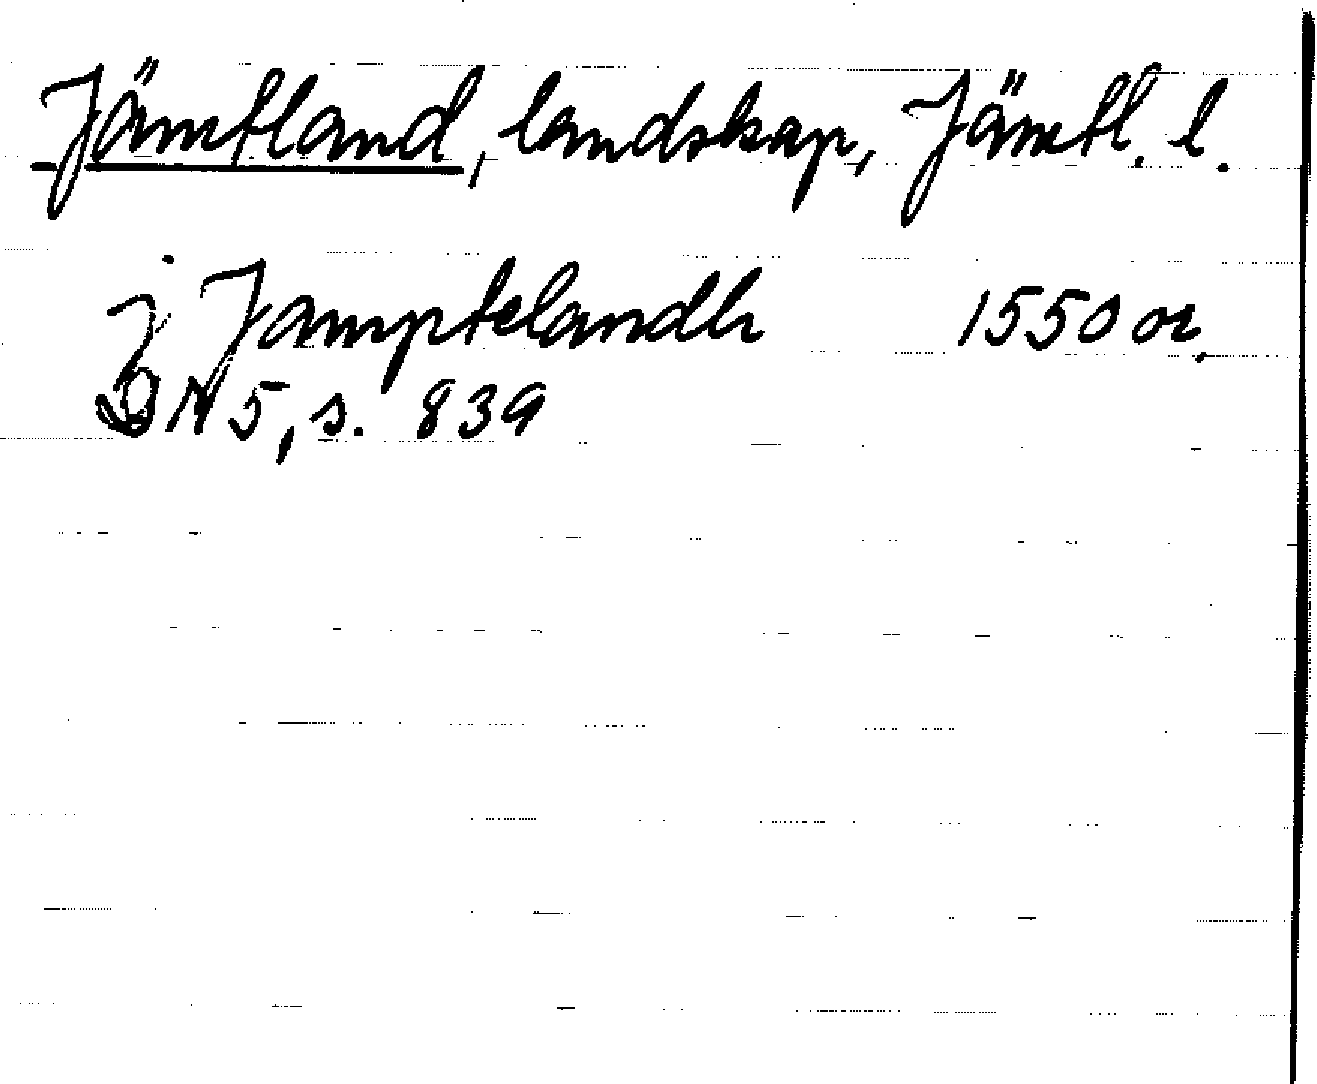 Jämtland, landskap, Jämtl. l.
j Jamptelandh 1550 or.
DN 5, s. 839